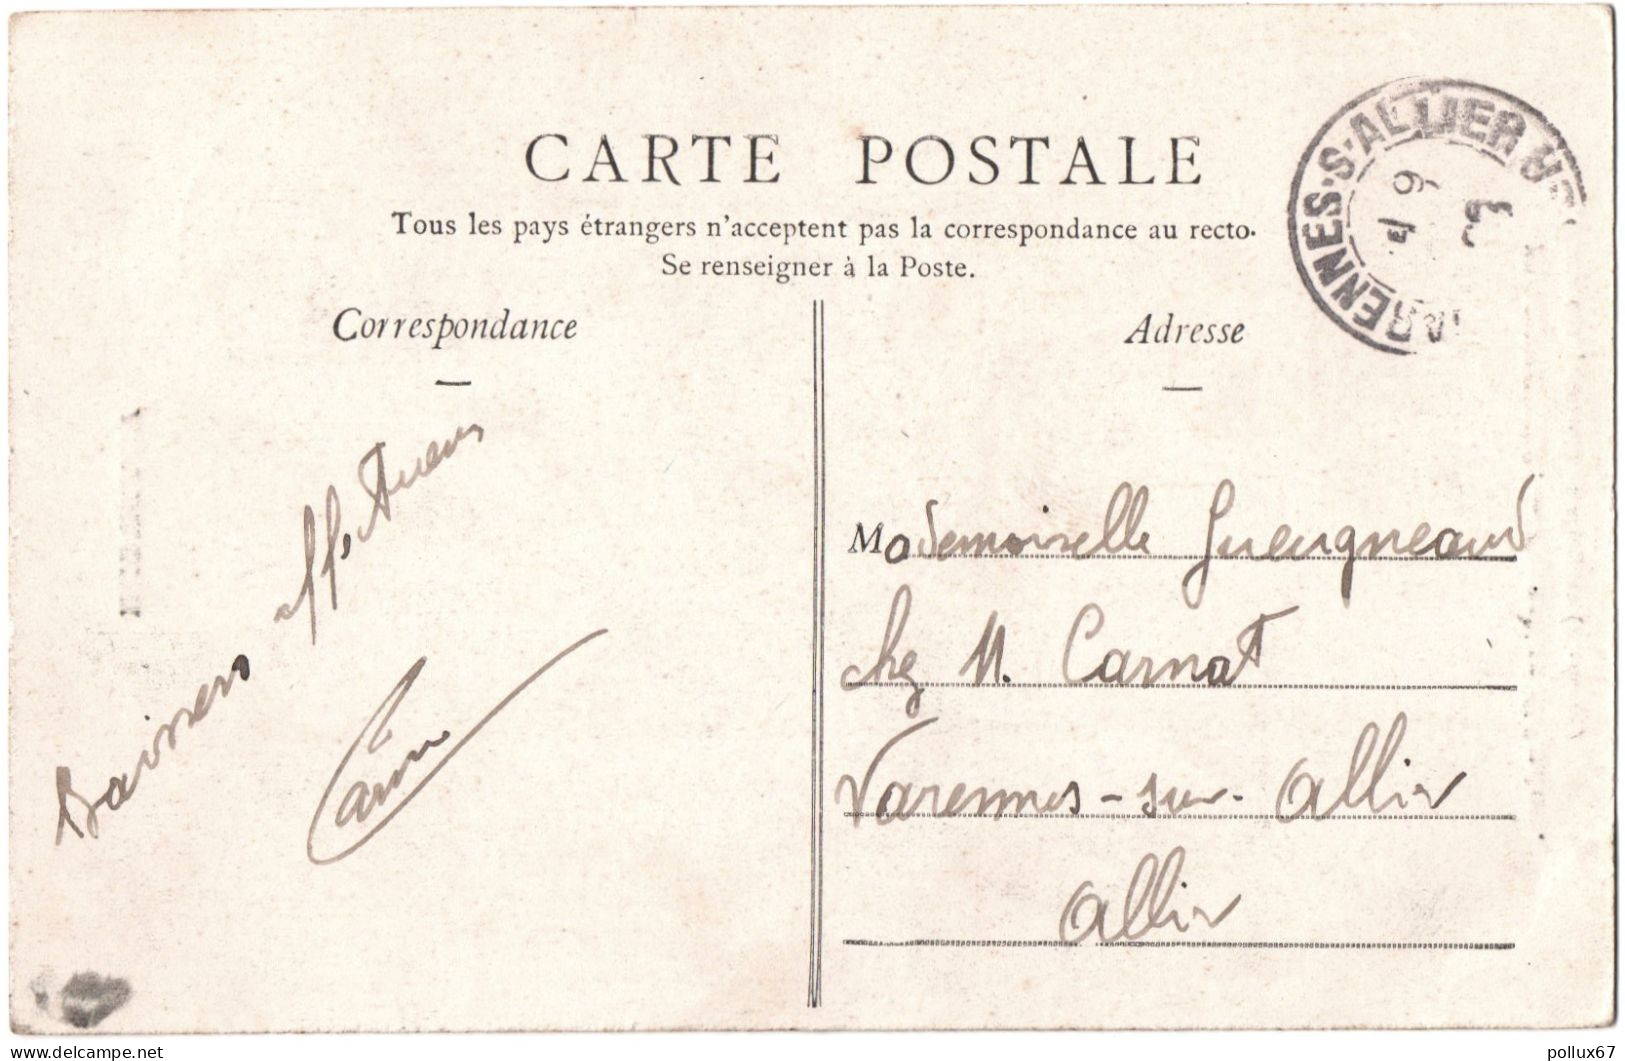 CARTE POSTALE
Tous les pays étrangers n'acceptent pas la correspondance au recto.
Se renseigner à la Poste.
Correspondance
Adresse
VARENNES-S-ALLIER
Baisers affectueux
Mademoiselle Gueugneaud
chez M. Carnot
Varennes-sur-Allier
Allier
pollux67